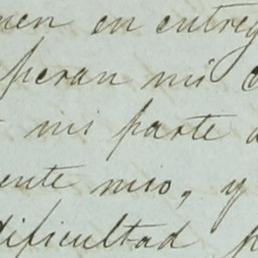 nen en entreg
peran mi c
mi parte a
ente mio, y
dificultad p